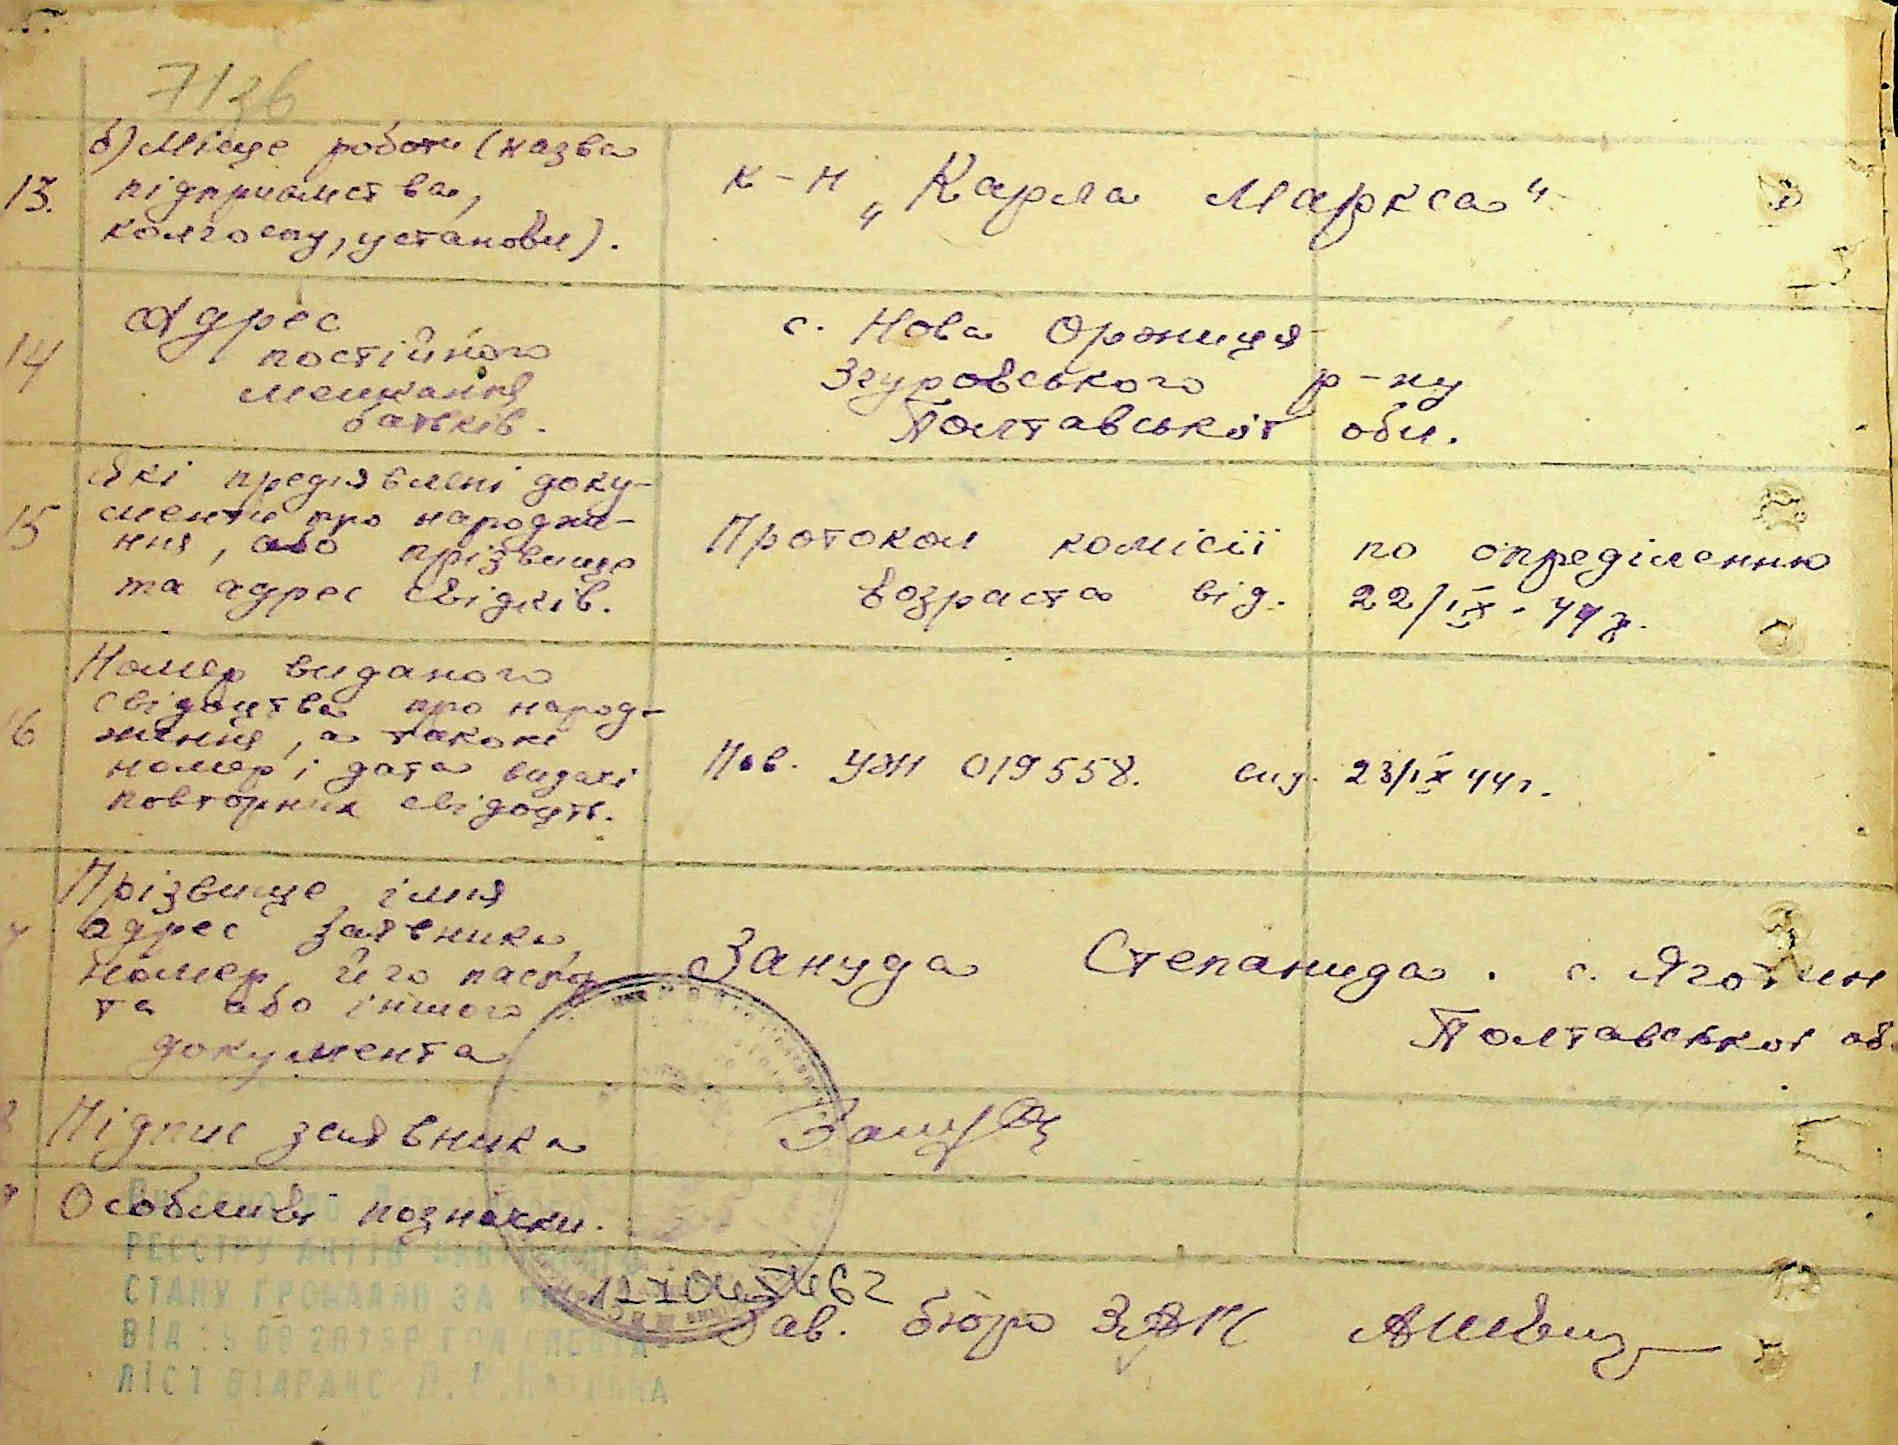 б) Місце роботи (назва
13. підприємства,
колгоспу, установи).
к-п „Карла Маркса"
14 Адрес
постійного
мешкання
батьків.
с. Нова Оржиця
Згуровського р-ну
Полтавської обл.
15 Які предявлені доку-
менти про народже-
ння, або прізвище
та адрес свідків.
Протокол комісії по опреділенню
возраста від. 22/IX-44 р.
16 Номер виданого
свідоцтва про народ-
ження, а також
номер і дата видачі
повторних свідоцтв.
Пов. УЖ 019558. вид. 23/IX 44 г.
Прізвище, імя
адрес заявника,
номер, його паспор
та або іншого
документа
Зануда Степанида. с. Яготин
Полтавської об.
Підпис заявника
Особливі позначки.
РЕЄСТРУ АКТІВ
СТАНУ ГРОМАДЯН ЗА
ВІД
Зав. бюро ЗАГС